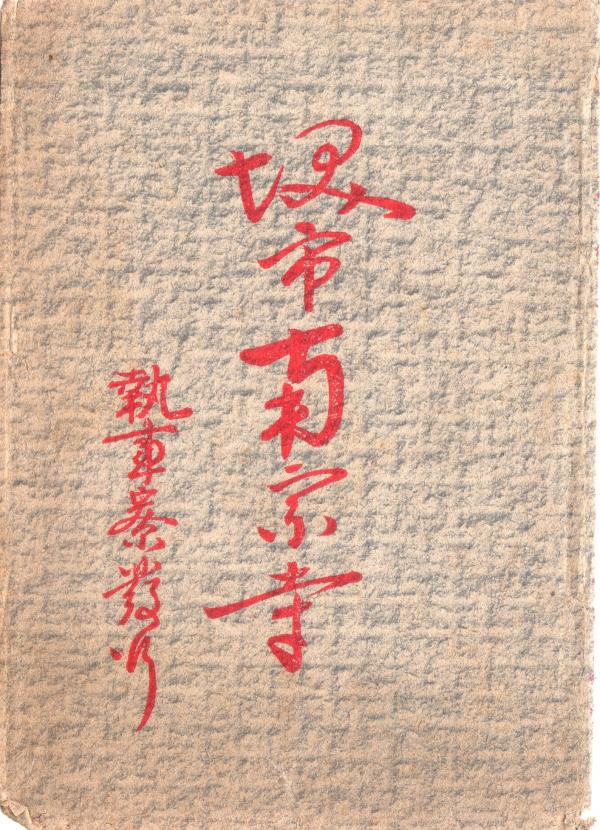 堺市南宗寺
執事寮發行